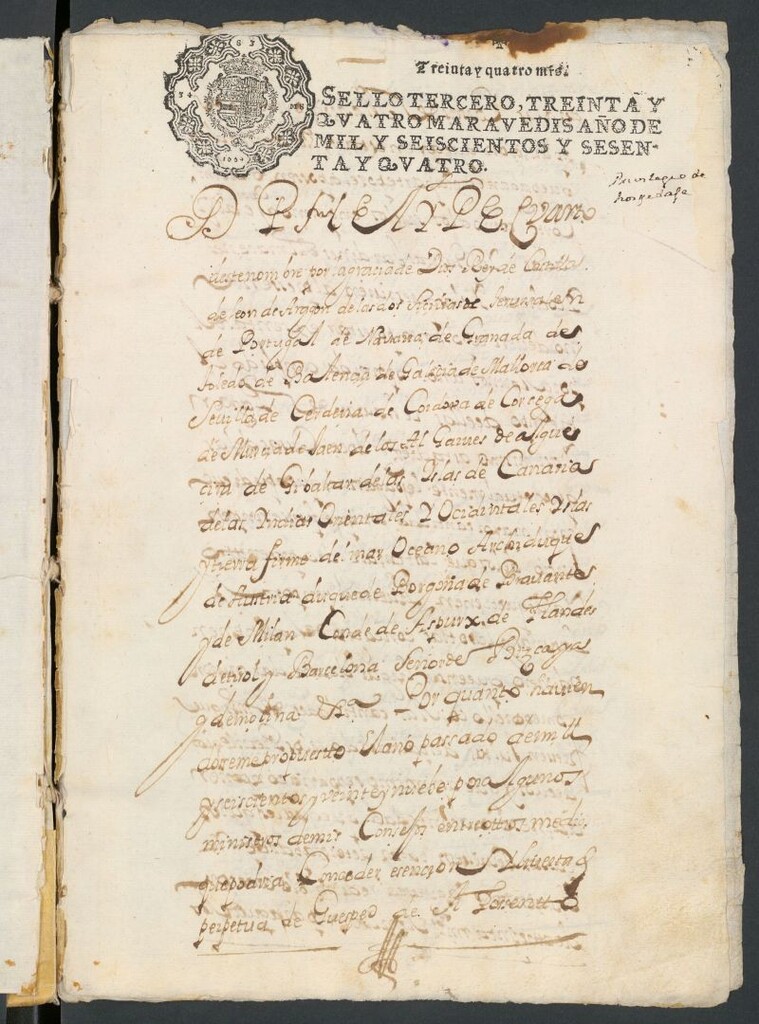 Treinta y quatro mrs.
SELLO TERCERO, TREINTA Y
QVATRO MARAVEDIS AÑO DE
MIL Y SEISCIENTOS Y SESEN-
TA Y QVATRO.
Previlegio de
hospedaje
D PhELYPE, Quarto
deste nombre por, agracia de Dios Rey de Castilla
de leon de Aragon de las dos Sicilias de Jerusalem
de Portugal de Navarra de Granada de
toledo de Balencia de Galicia de Mallorca de
Sevilla de Cerdeña de Cordova de Corcega
de Murcia de Jaen de los Al Garves de algeci
cira de Gibaltar de las Yslas de Canarias
de las Yndias Orientales Y Ocidentales Yslas
y tierra firme del mar Oceano Archiduque
de Austria duque de Borgoña de Bravante
y de Milan Conde de Aspurx de Flandes
de tirol y Barcelona Señor de Bizcaya
y de molina &a Por quanto havien
doseme propuesto El año passado de mill
y seiscientos y veinte y nuebe por Algunos
ministros de mis Consejos entre otros medios
que podria Conceder esencion
perpetua de Guesped de Aposento